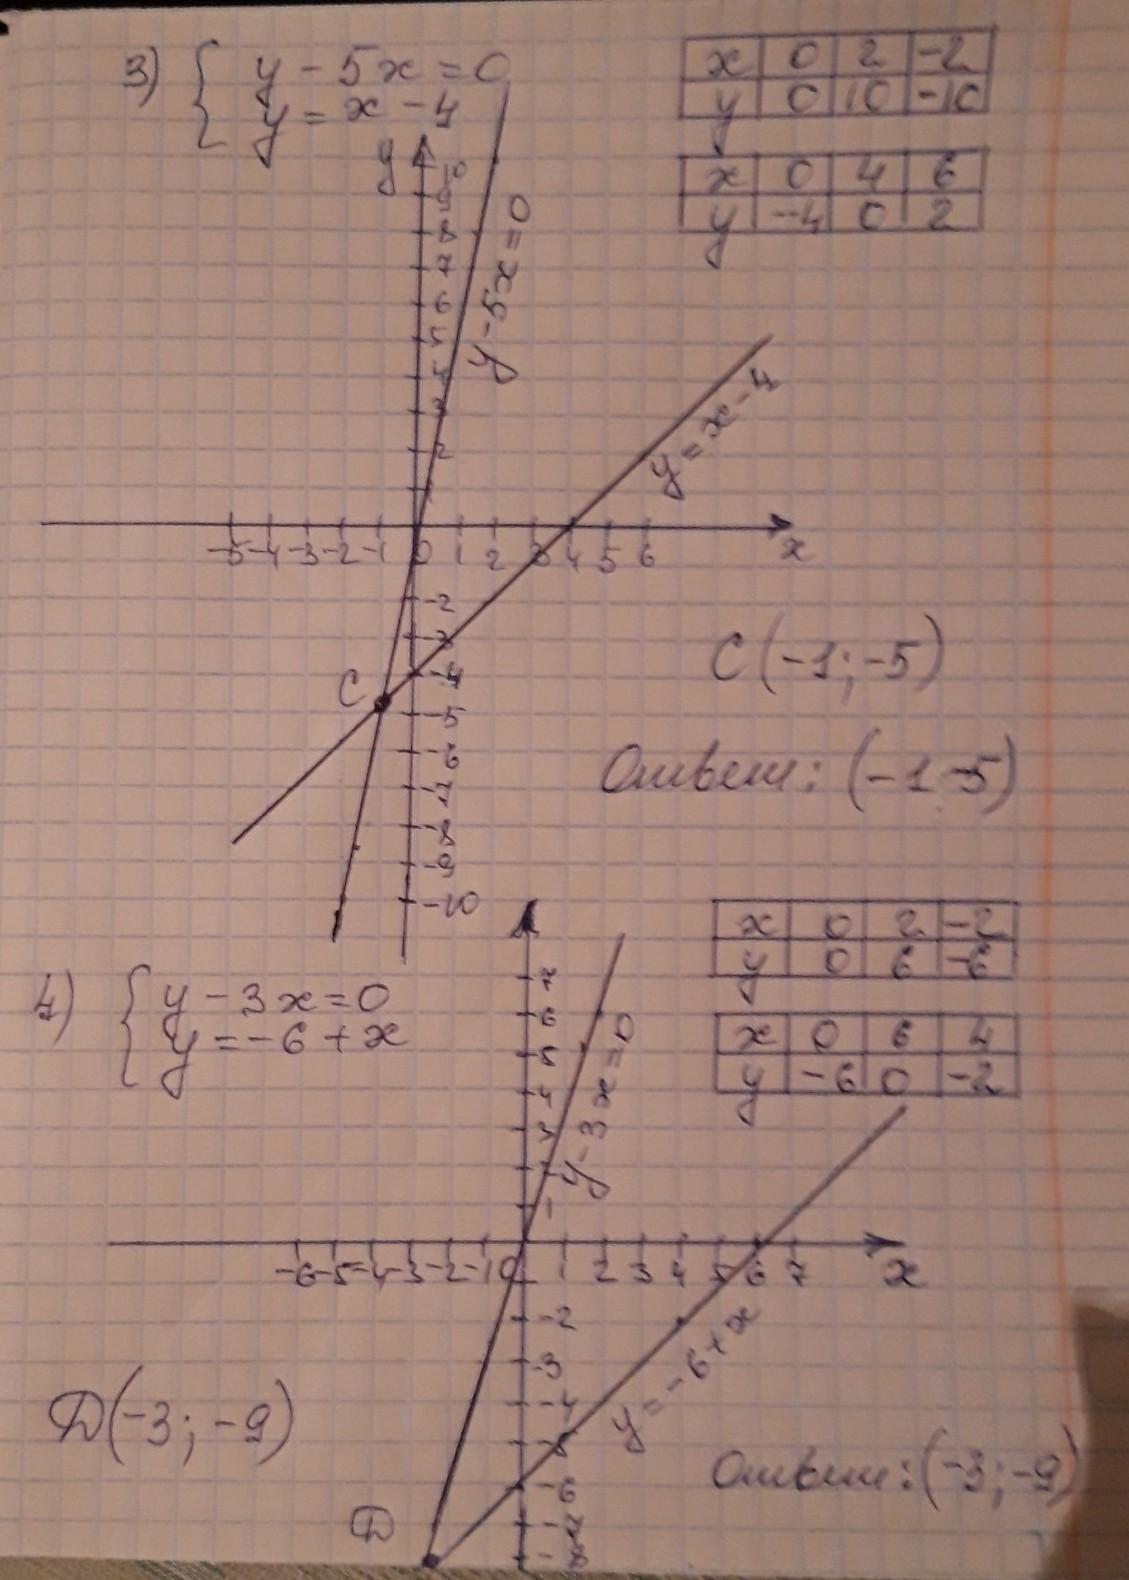 3) { y - 5x = 0
y = x - 4
x 0 2 -2
y 0 10 -10
x 0 4 6
y -4 0 2
y
10
9
8
7
6
5
4
3
2
1
y-5x=0
y=x-4
-5 -4 -3 -2 -1 0 1 2 3 4 5 6
x
-2
-3
-4
-5
-6
-7
-8
-9
-10
C
C (-1; -5)
Ответ: (-1; -5)
4) { y - 3x = 0
y = -6 + x
x 0 2 -2
y 0 6 -6
x 0 6 4
y -6 0 -2
7
6
5
4
3
2
1
y-3x=0
-6 -5 -4 -3 -2 -1 0 1 2 3 4 5 6 7
x
-2
-3
-4
-5
-6
-7
-8
y=-6+x
D(-3; -9)
D
Ответ: (-3; -9)